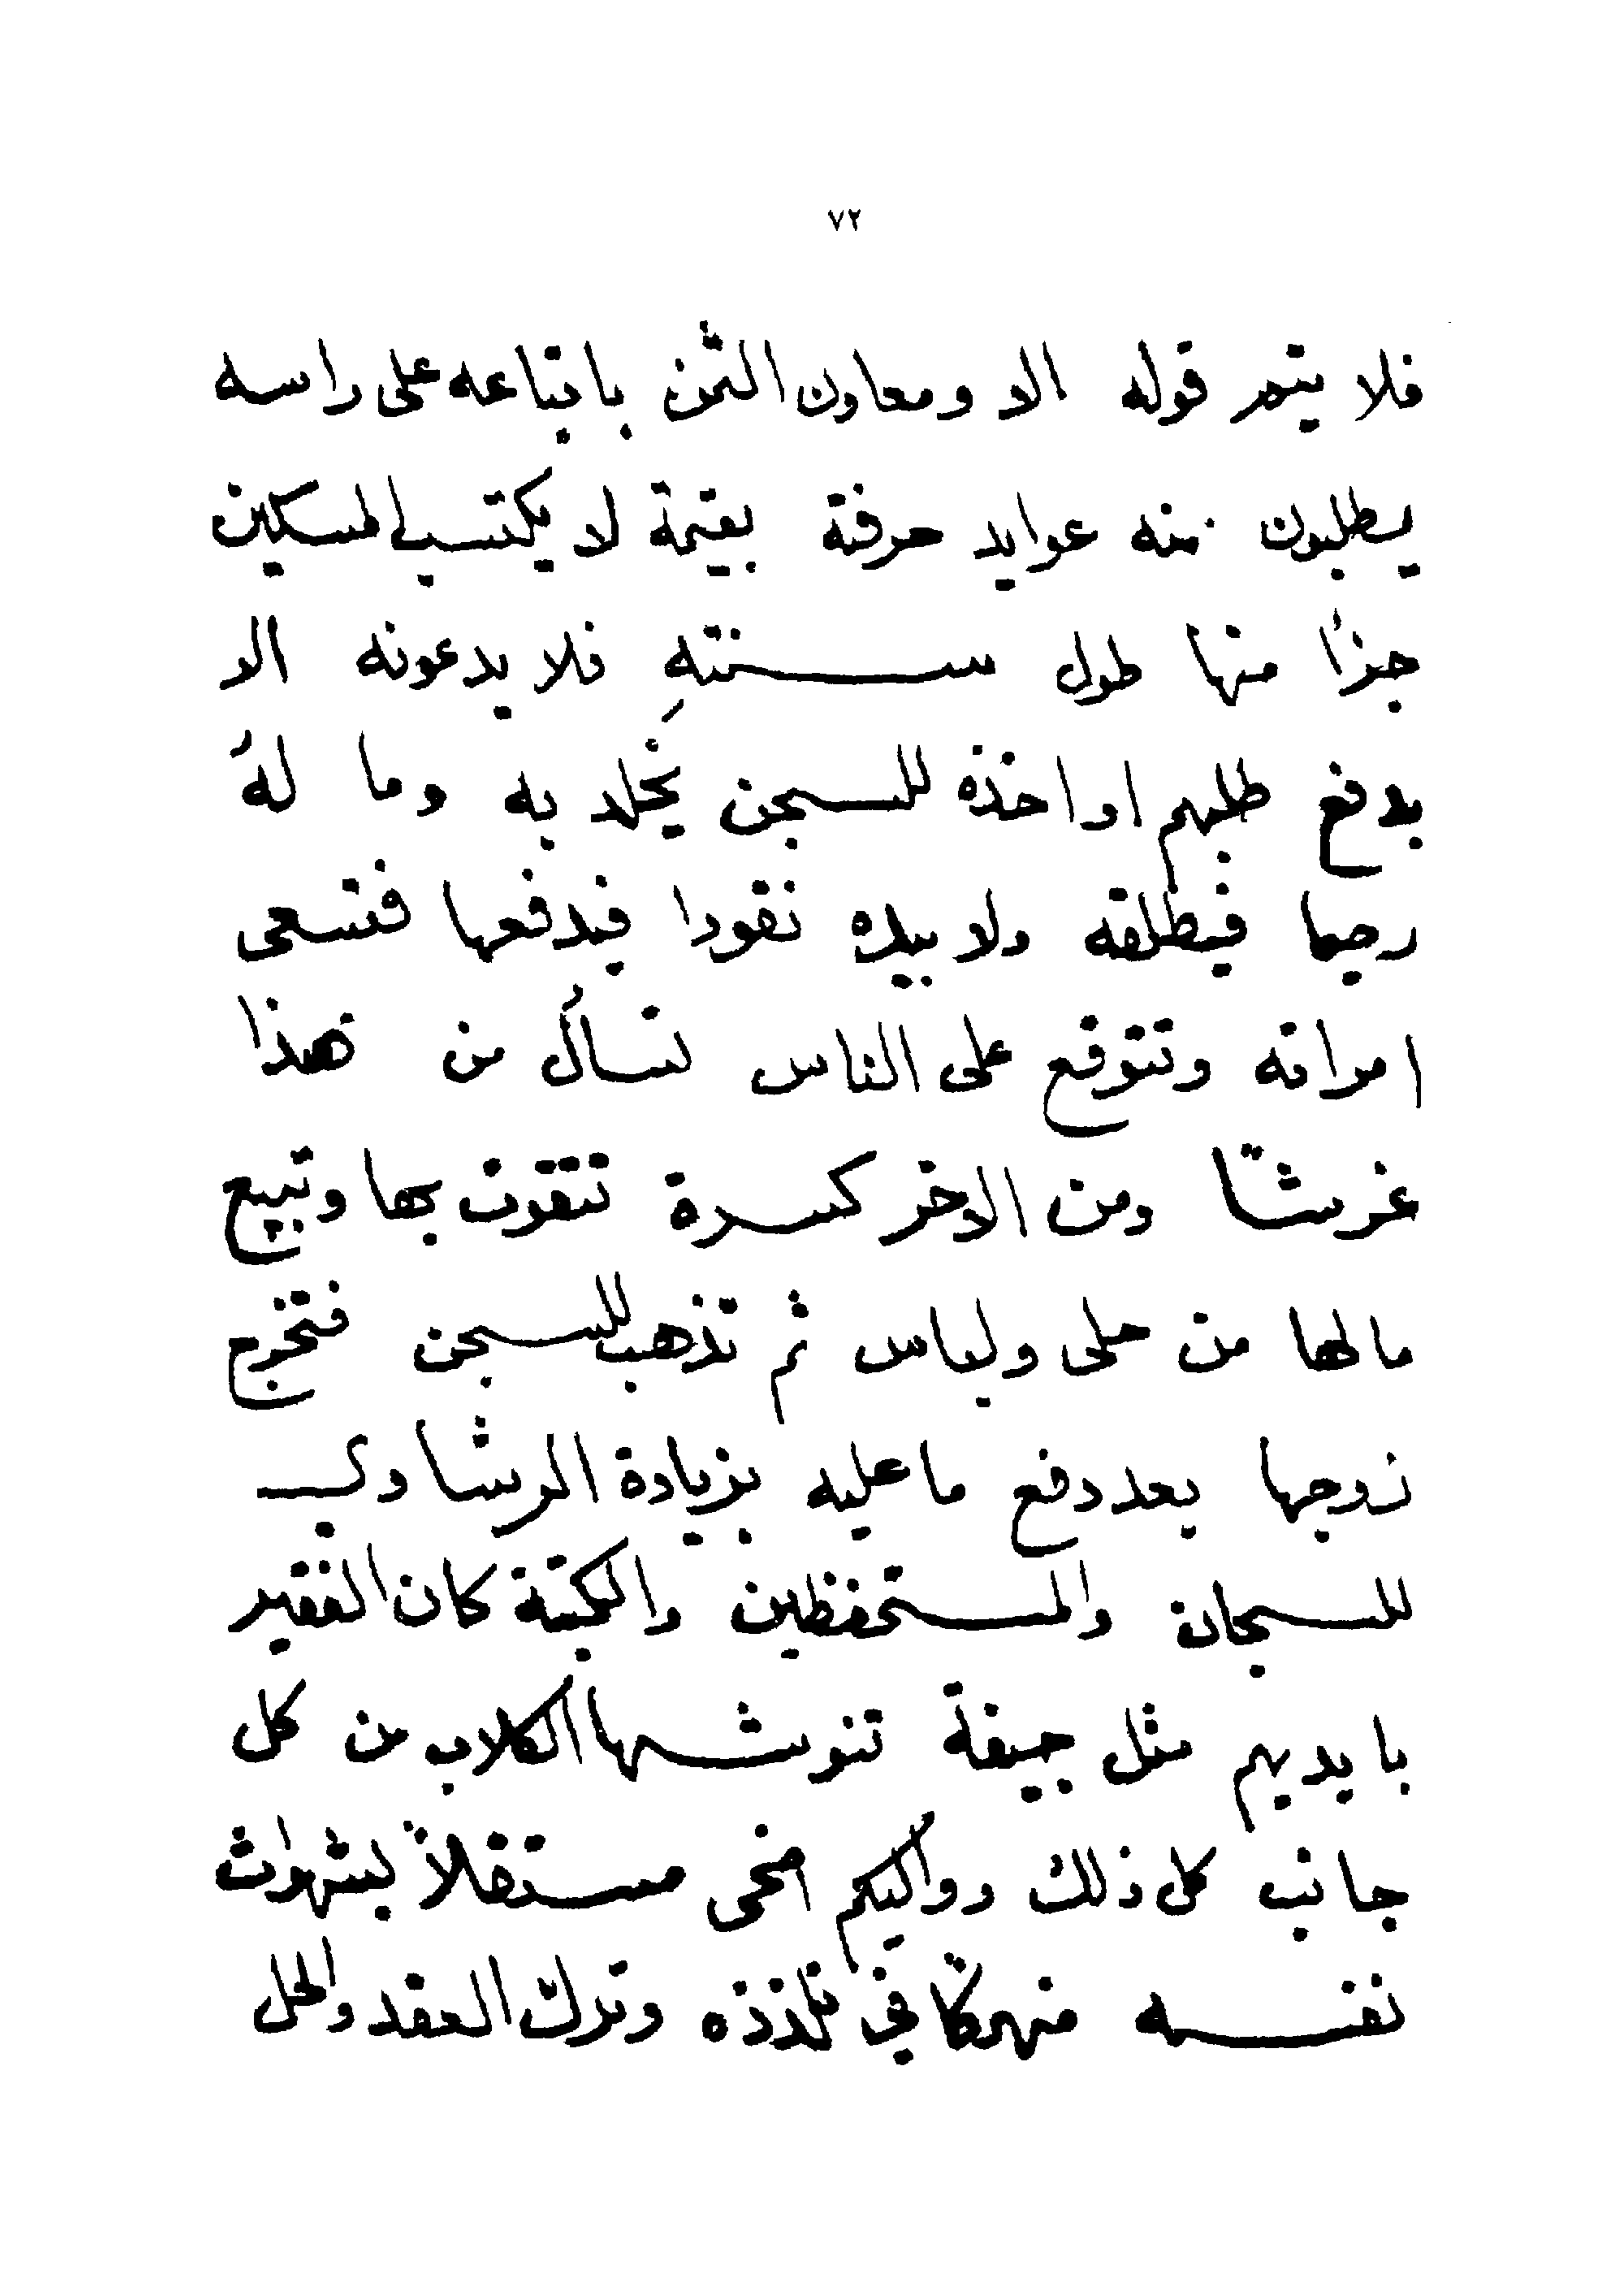 ٧٢
فلا يتم قوله الا ومعاون الثمن باتباعه على راسه
يطلبون منه عوايد حرفة بقيمة لا يكتسب المسكين
جزأ منها طول سنتهِ فلا يدعونه الا
بدفع طلبهم او اخذه للسجن يُخلد به وما لهُ
رحيما فيطلقه ولا بيده نقودا فيدفعها فتسعى
امراته وتتوقع على الناس تسأل من هذا
غرشاً ومن الاخر كسرة تتقوت بها وتبيع
مالها من حلى ولباس ثم تذهب للسجن فتخرج
زوجها بعد دفع ما عليه بزيادة الرشاوى
للسجان والمستحفظين والكتبة كان الفقير
بايديهم مثل جيفة تنوشها الكلاب من كل
جانب كل ذلك وواليكم اضحى مستقلاً بشهوات
نفسه منهمكا في تلذذه وترك العقد والحل